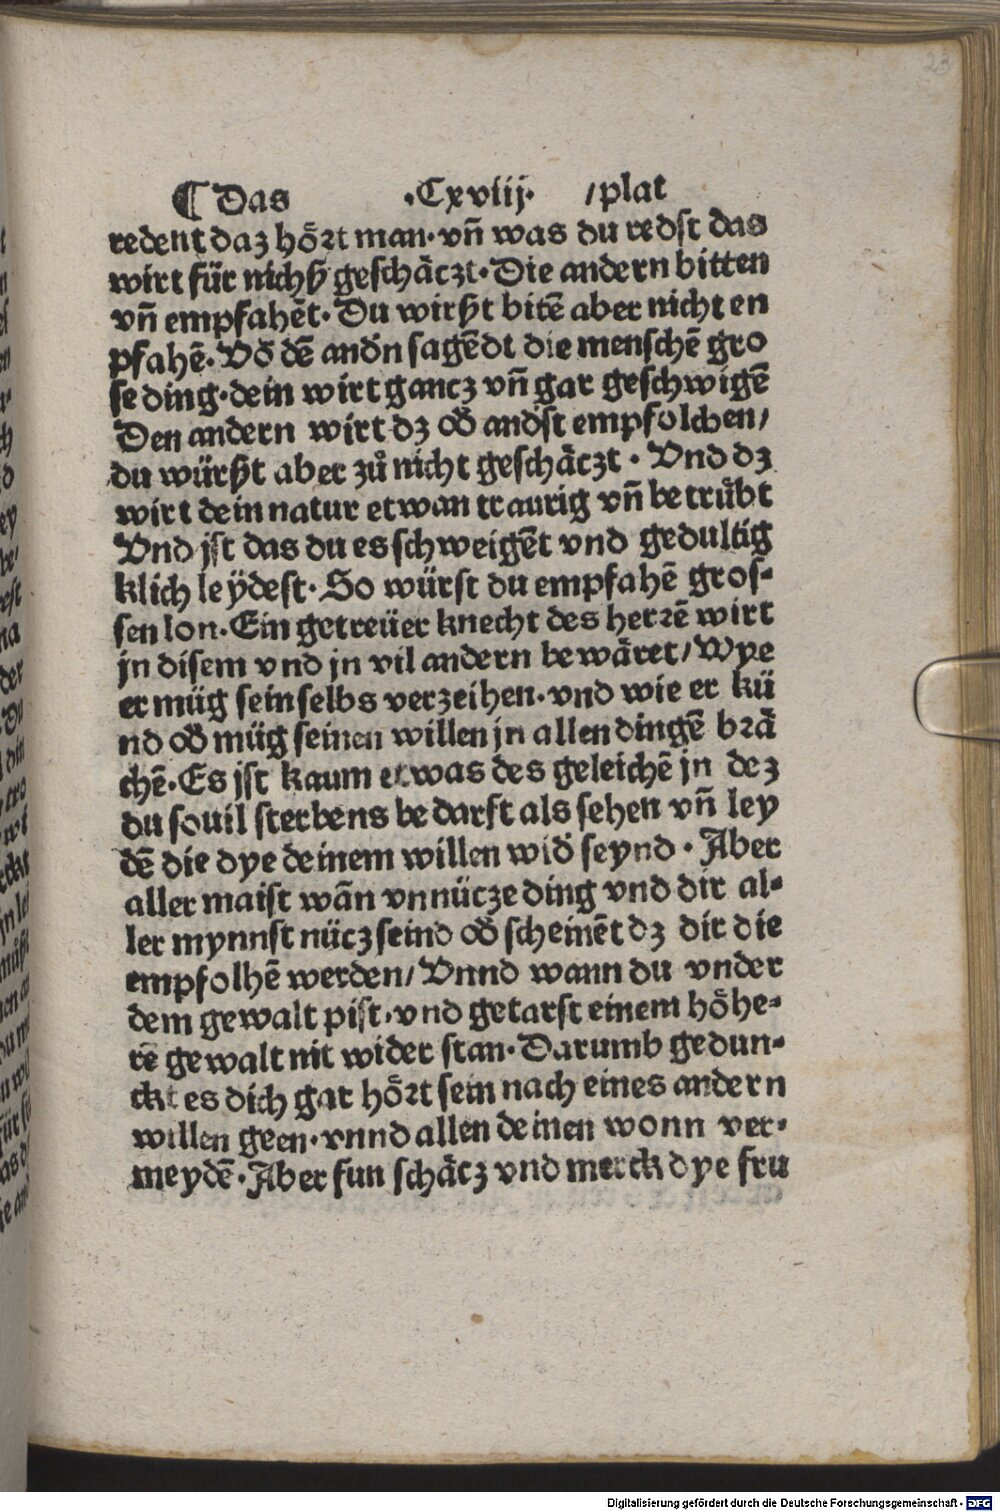 23
¶ Das ·Cxviij· /plat
redent daz hőrt man· vñ was du redst das
wirt für nichß geschäczt· Die andern bitten
vñ empfahēt· Du wirßt bitē aber nicht en
pfahē· Vō dē andn̄ sagēdt die menschē gro
se ding· dein wirt gancz vñ gar geschwigē
Den andern wirt dz od̄ andst empfolchen/
du würßt aber zů nicht geschäczt· Vnd dz
wirt dein natur etwan traurig vñ betrůbt
Vnd jst das du es schweigēt vnd gedultig
klich leÿdest· So würst du empfahē gros⸗
sen lon· Ein getreüer knecht des herrē wirt
jn disem vnd jn vil andern bewäret/ Wye
er müg sein selbs verzeihen· vnd wie er kü
nd od̄ müg seinen willen jn allen dingē brä
chē· Es jst kaum etwas des geleichē jn dez
du souil sterbens bedarft als sehen vñ ley
dē die dye deinem willen wid̄ seynd· Aber
aller maist wān vnnücze ding vnd dir al⸗
ler mynnst nücz seind od̄ scheinēt dz dir die
empfolhē werden/ Vnnd wann du vnder
dem gewalt pist· vnd getarst einem hőhe⸗
rē gewalt nit wider stan· Darumb gedun⸗
ckt es dich gar hőrt sein nach eines andern
willen geen· vnnd allen deinen wonn ver⸗
meydē· Aber sun schäcz vnd merck dye fru
Digitalisierung gefördert durch die Deutsche Forschungsgemeinschaft - DFG